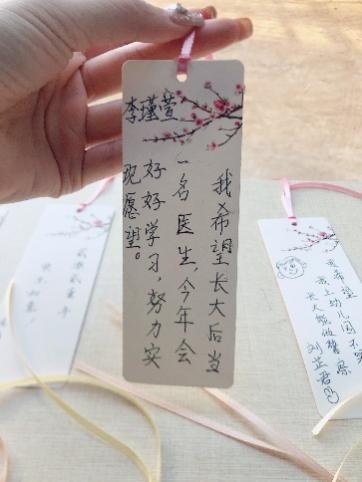 李瑾萱
我希望长大后当
一名医生,今年会
好好学习,努力实
现愿望。
我希望
我上幼儿园不
长大能做警察
刘芷君